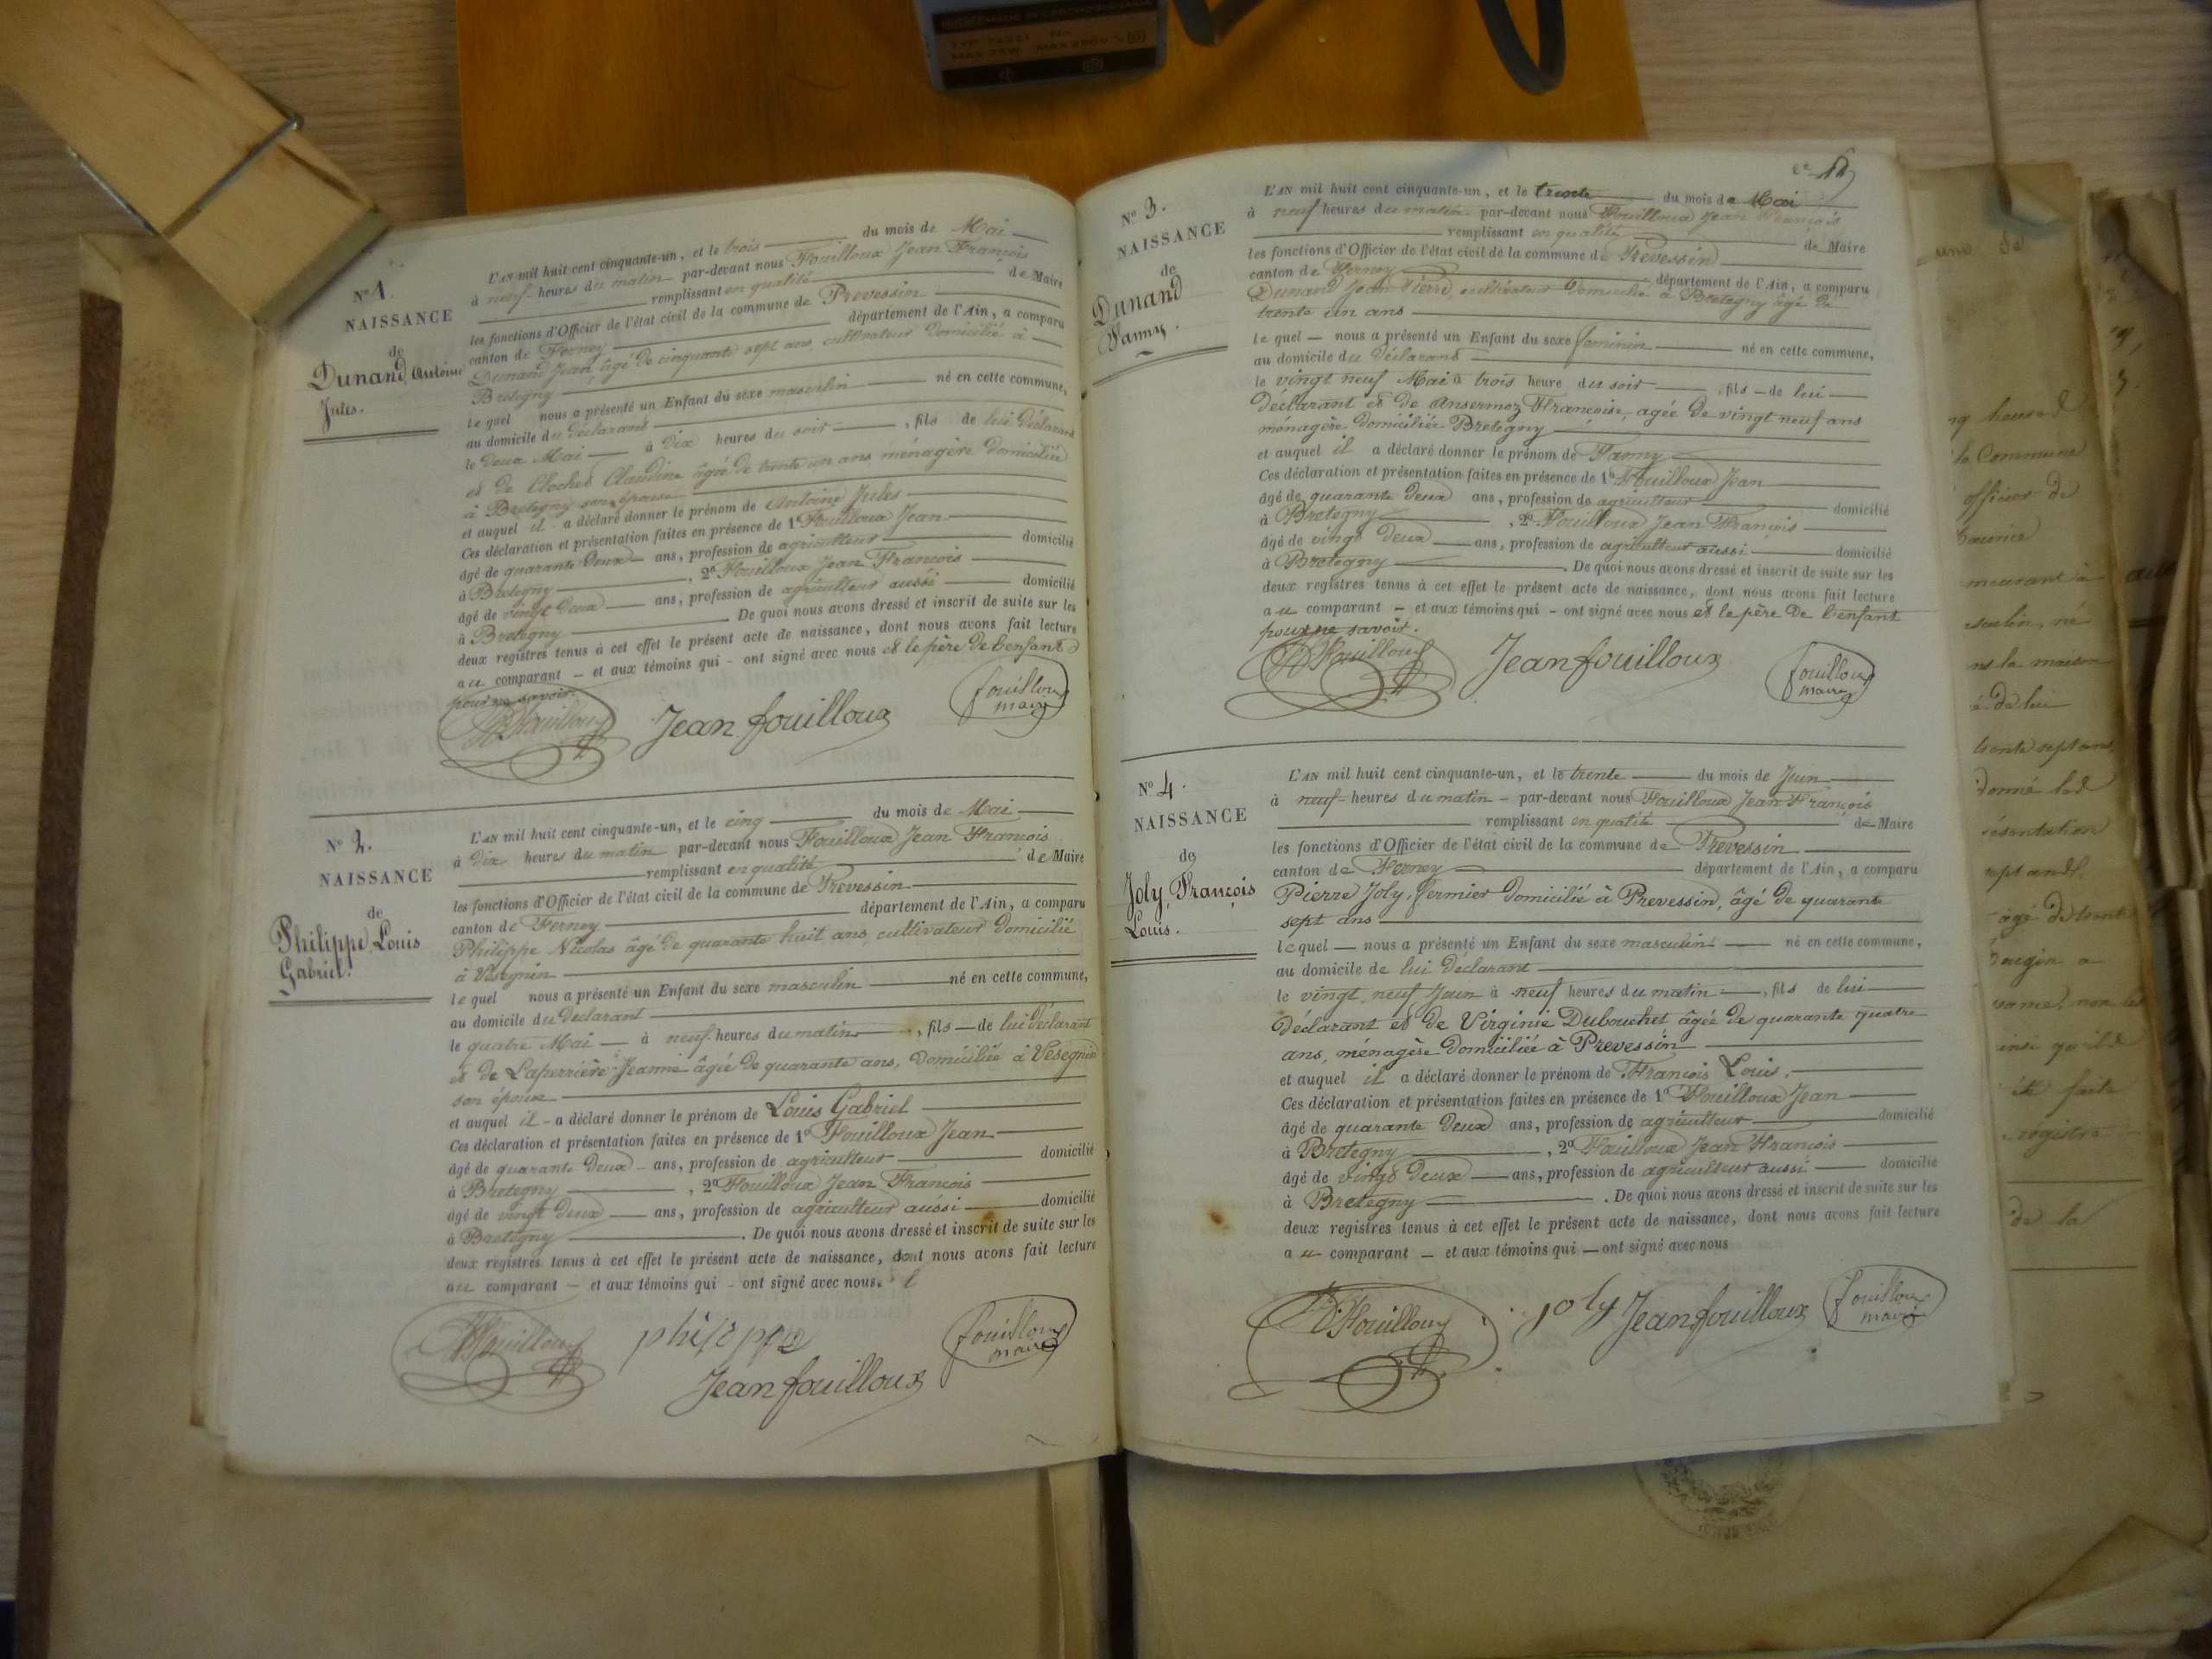 N° 1.
NAISSANCE
de
Dunand Antoine
Jules.
L'AN mil huit cent cinquante-un, et le trois du mois de Mai
à neuf heures du matin par-devant nous Fouilloux Jean François
remplissant en qualité de Maire
les fonctions d'Officier de l'état civil de la commune de Prevessin
canton de Ferney département de l'Ain, a comparu
Dunand Jean âgé de cinquante sept ans cultivateur domicilié à
Bretegny
le quel nous a présenté un Enfant du sexe masculin né en cette commune,
au domicile du déclarant
le deux Mai à dix heures du soir, fils de lui déclarant
et de Clochet Claudine âgée de trente un ans ménagère domiciliée
à Bretegny son épouse
et auquel il a déclaré donner le prénom de Antoine Jules
Ces déclaration et présentation faites en présence de 1° Fouilloux Jean
âgé de quarante deux ans, profession de agriculteur domicilié
à Bretegny, 2° Fouilloux Jean François
âgé de vingt deux ans, profession de agriculteur aussi domicilié
à Bretegny. De quoi nous avons dressé et inscrit de suite sur les
deux registres tenus à cet effet le présent acte de naissance, dont nous avons fait lecture
au comparant et aux témoins qui ont signé avec nous et le père de l'enfant
pour ne savoir.
Fouilloux
Jean fouilloux
fouilloux
maire
N° 2.
NAISSANCE
de
Philippe Louis
Gabriel.
L'AN mil huit cent cinquante-un, et le cinq du mois de Mai
à dix heures du matin par-devant nous Fouilloux Jean François
remplissant en qualité de Maire
les fonctions d'Officier de l'état civil de la commune de Prevessin
canton de Ferney département de l'Ain, a comparu
Philippe Nicolas âgé de quarante huit ans, cultivateur domicilié
à Vesegnin
le quel nous a présenté un Enfant du sexe masculin né en cette commune,
au domicile du déclarant
le quatre Mai à neuf heures du matin, fils de lui déclarant
et de Laperrière Jeanne âgée de quarante ans, domiciliée à Vesegnin
son épouse
et auquel il a déclaré donner le prénom de Louis Gabriel
Ces déclaration et présentation faites en présence de 1° Fouilloux Jean
âgé de quarante deux ans, profession de agriculteur domicilié
à Bretegny, 2° Fouilloux Jean François
âgé de vingt deux ans, profession de agriculteur aussi domicilié
à Bretegny. De quoi nous avons dressé et inscrit de suite sur les
deux registres tenus à cet effet le présent acte de naissance, dont nous avons fait lecture
au comparant et aux témoins qui ont signé avec nous.
Fouilloux
philippe
Jean fouilloux
fouilloux
maire
N° 3.
NAISSANCE
de
Dunand
Fanny.
L'AN mil huit cent cinquante-un, et le trente du mois de Mai
à neuf heures du matin par-devant nous Fouilloux Jean François
remplissant en qualité de Maire
les fonctions d'Officier de l'état civil de la commune de Prevessin
canton de Ferney département de l'Ain, a comparu
Dunand Jean Pierre, cultivateur domicilié à Bretegny âgé de
trente un ans
le quel nous a présenté un Enfant du sexe feminin né en cette commune,
au domicile du déclarant
le vingt neuf Mai à trois heure du soir, fils de lui
déclarant et de Ansermoz Françoise, agée de vingt neuf ans
ménagère domiciliée Bretegny
et auquel il a déclaré donner le prénom de Fanny
Ces déclaration et présentation faites en présence de 1° Fouilloux Jean
âgé de quarante deux ans, profession de agriculteur domicilié
à Bretegny, 2° Fouilloux Jean François
âgé de vingt deux ans, profession de agriculteur aussi domicilié
à Bretegny. De quoi nous avons dressé et inscrit de suite sur les
deux registres tenus à cet effet le présent acte de naissance, dont nous avons fait lecture
au comparant et aux témoins qui ont signé avec nous et le père de l'enfant
pour ne savoir.
Fouilloux
Jean fouilloux
fouilloux
maire
N° 4.
NAISSANCE
de
Joly, François
Louis.
L'AN mil huit cent cinquante-un, et le trente du mois de Juin
à neuf heures du matin par-devant nous Fouilloux Jean François
remplissant en qualité de Maire
les fonctions d'Officier de l'état civil de la commune de Prevessin
canton de Ferney département de l'Ain, a comparu
Pierre Joly, fermier domicilié à Prevessin, âgé de quarante
sept ans
le quel nous a présenté un Enfant du sexe masculin né en cette commune,
au domicile de lui déclarant
le vingt neuf Juin à neuf heures du matin, fils de lui
déclarant et de Virginie Dubouchet âgée de quarante quatre
ans, ménagère domiciliée à Prevessin
et auquel il a déclaré donner le prénom de François Louis.
Ces déclaration et présentation faites en présence de 1° Fouilloux Jean
âgé de quarante deux ans, profession de agriculteur domicilié
à Bretegny, 2° Fouilloux Jean François
âgé de vingt deux ans, profession de agriculteur aussi domicilié
à Bretegny. De quoi nous avons dressé et inscrit de suite sur les
deux registres tenus à cet effet le présent acte de naissance, dont nous avons fait lecture
au comparant et aux témoins qui ont signé avec nous
Fouilloux
joly
Jean fouilloux
fouilloux
maire
la Commune
officier de
mourant à
la maison
de lui
âgé de trente
fait
registre
de la